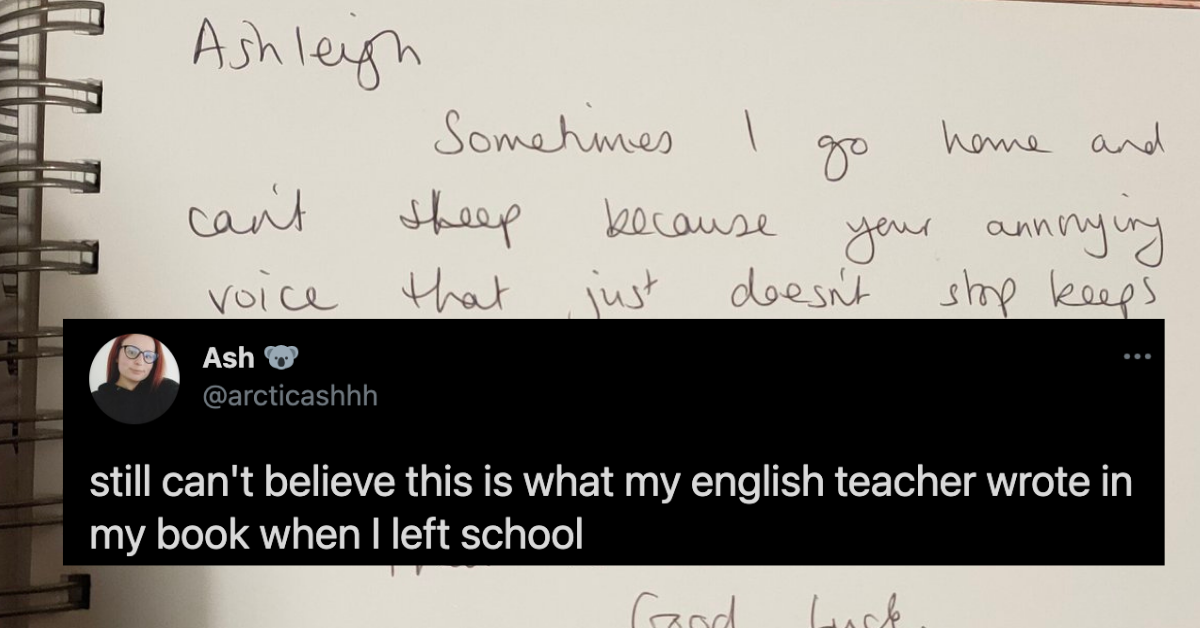 Ashleigh
Sometimes I go home and
can't sleep because your annoying
voice that just doesn't stop keeps
Ash 🐨
@arcticashhh
still can't believe this is what my english teacher wrote in
my book when I left school
Good luck.